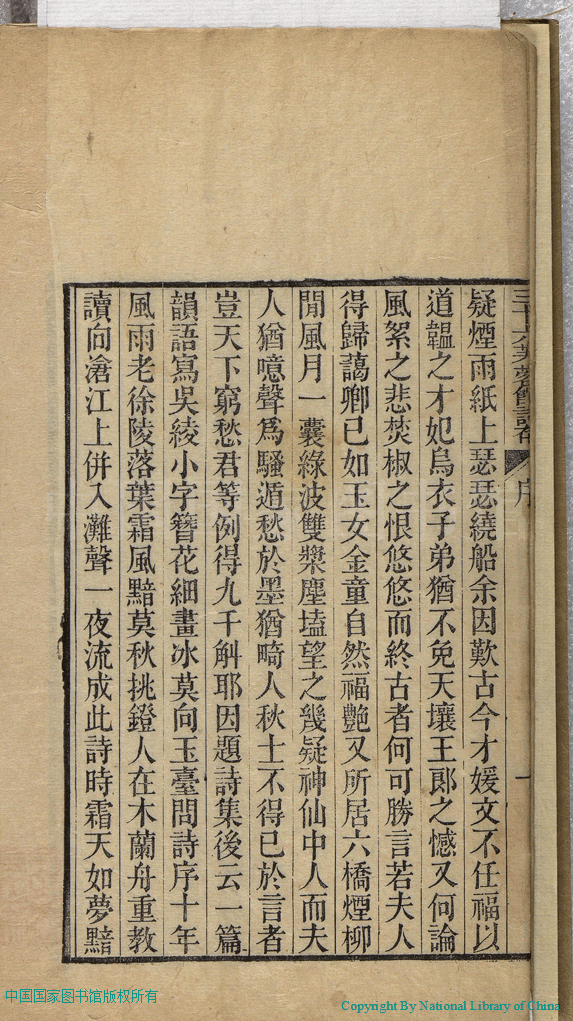 三十六芙蓉館詩存 序 一
疑煙雨紙上瑟瑟繞船余因歎古今才媛文不任福以
道韞之才妃烏衣子弟猶不免天壤王郎之憾又何論
風絮之悲焚椒之恨悠悠而終古者何可勝言若夫人
得歸藹卿已如玉女金童自然福艷又所居六橋煙柳
閒風月一囊綠波雙槳塵壒望之幾疑神仙中人而夫
人猶噫聲爲騷遁愁於墨猶畸人秋士不得已於言者
豈天下窮愁君等例得九千斛耶因題詩集後云一篇
韻語寫吳綾小字簪花細畫冰莫向玉臺問詩序十年
風雨老徐陵落葉霜風黯莫秋挑鐙人在木蘭舟重教
讀向滄江上併入灘聲一夜流成此詩時霜天如夢黯
中国国家图书馆版权所有
Copyright By National Library of China